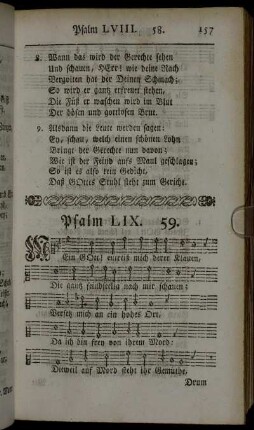 Psalm LVIII. 58. 157
8. Wann das wird der Gerechte sehen
Und schauen, HErr! wie deine Rach
Vergolten hat der Deinen Schmach;
So wird er gantz erfreuet stehen,
Die Füß er waschen wird im Blut
Der bösen und gottlosen Brut.
9. Alsdann die Leute werden sagen:
Ey, schau, welch einen schönen Lohn
Bringt der Gerechte nun davon;
Wie ist der Feind aufs Maul geschlagen;
So ist es also kein Gedicht,
Daß GOttes Stuhl steht zum Gericht.
Psalm LIX. 59.
Mein GOtt! errett mich derer Klauen,
Die gantz feindselig nach mir schauen;
Versetz mich an ein hohes Ort,
Da ich bin frey von ihrem Mord:
Dieweil auf Mord steht ihr Gemüthe,
Drum